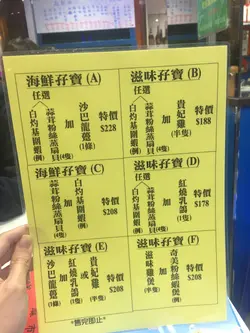 海鮮孖寶 (A)
任選
白灼基圍蝦(例)
蒜茸粉絲蒸扇貝(4隻)
加
沙巴龍躉(1條)
特價
$228
滋味孖寶 (B)
任選
白灼基圍蝦(例)
蒜茸粉絲蒸扇貝(4隻)
加
貴妃雞(半隻)
特價
$188
海鮮孖寶 (C)
蒜茸粉絲蒸扇貝(4隻)
加
白灼基圍蝦(例)
特價
$208
滋味孖寶 (D)
任選
白灼基圍蝦(例)
蒜茸粉絲蒸扇貝(4隻)
加
紅燒乳鴿(1隻)
特價
$178
滋味孖寶 (E)
沙巴龍躉(1條)
加
紅燒乳鴿(1隻)
或
貴妃雞(半隻)
特價
$208
滋味孖寶 (F)
滋味雞煲(例)
加
奇美粉絲蝦煲(例)
特價
$208
*售完即止*